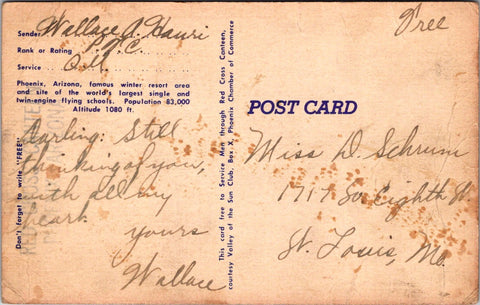 Sender Wallace A. Hauri
Free
Rank or Rating P.F.C.
Service Q.M.
Phoenix, Arizona, famous winter resort area
and site of the world's largest single and
twin-engine flying schools. Population 83,000
Altitude 1080 ft.
Don't forget to write "FREE"
Darling: Still
thinking of you,
with all my
heart
yours
Wallace
This card free to Service Men through Red Cross Canteen,
courtesy Valley of the Sun Club, Box X, Phoenix Chamber of Commerce
POST CARD
Miss D. Schrum
1717 So. Eighth St.
St. Louis, Mo.